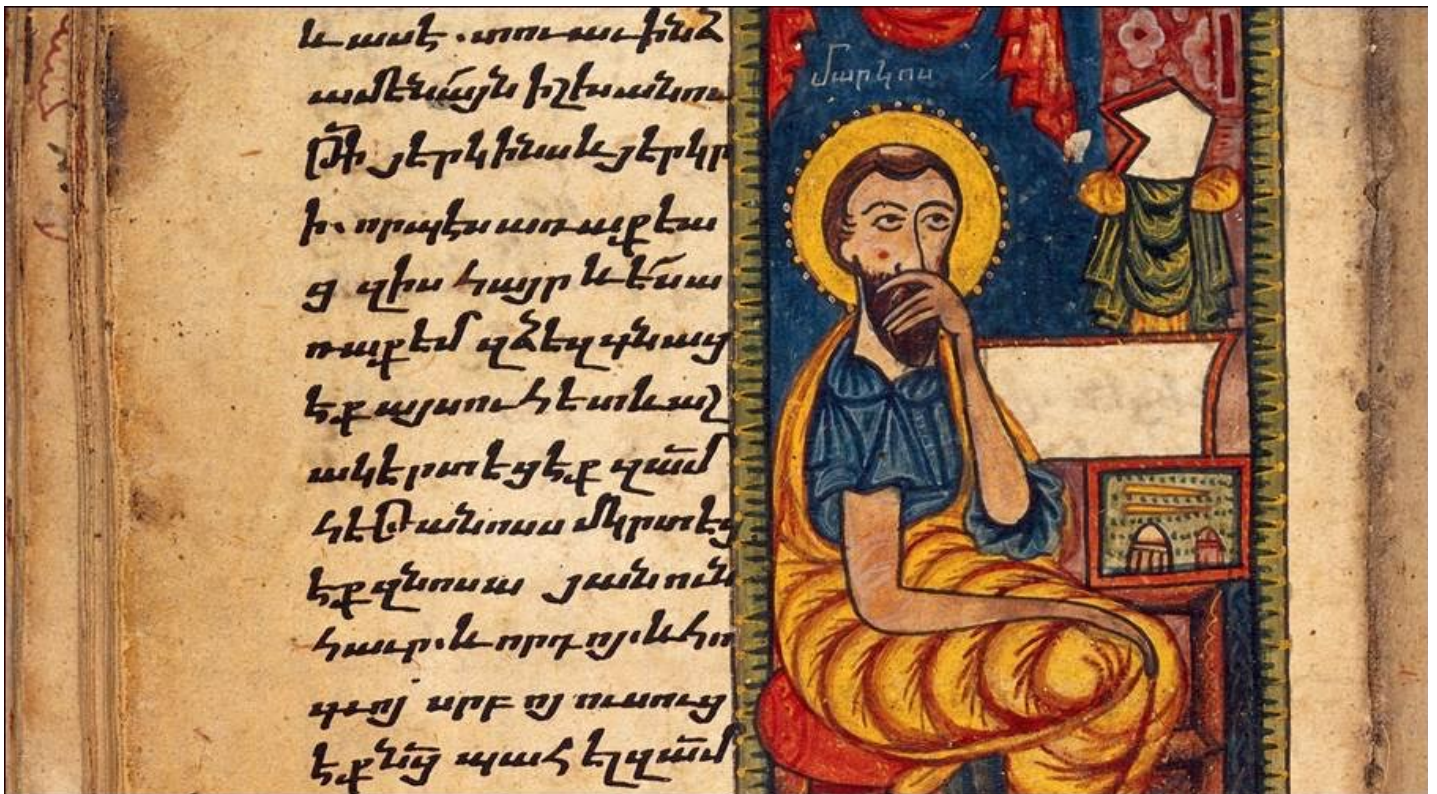 և ասէ. տուաւ ինձ
ամենայն իշխանու
թի յերկինս և յերկր
ի. որպէս առաքեա
ց զիս հայր և ես ա
ռաքեմ զձեզ գնաց
եք այսուհետև աշ
ակերտեցեք զամ
հեթանոսս մկրտեց
եք զնոսա յանուն
հաւր. և որդոյ. և հո
գւոյ սրբոյ ուսուց
եք նց պահել զամ
Մարկոս